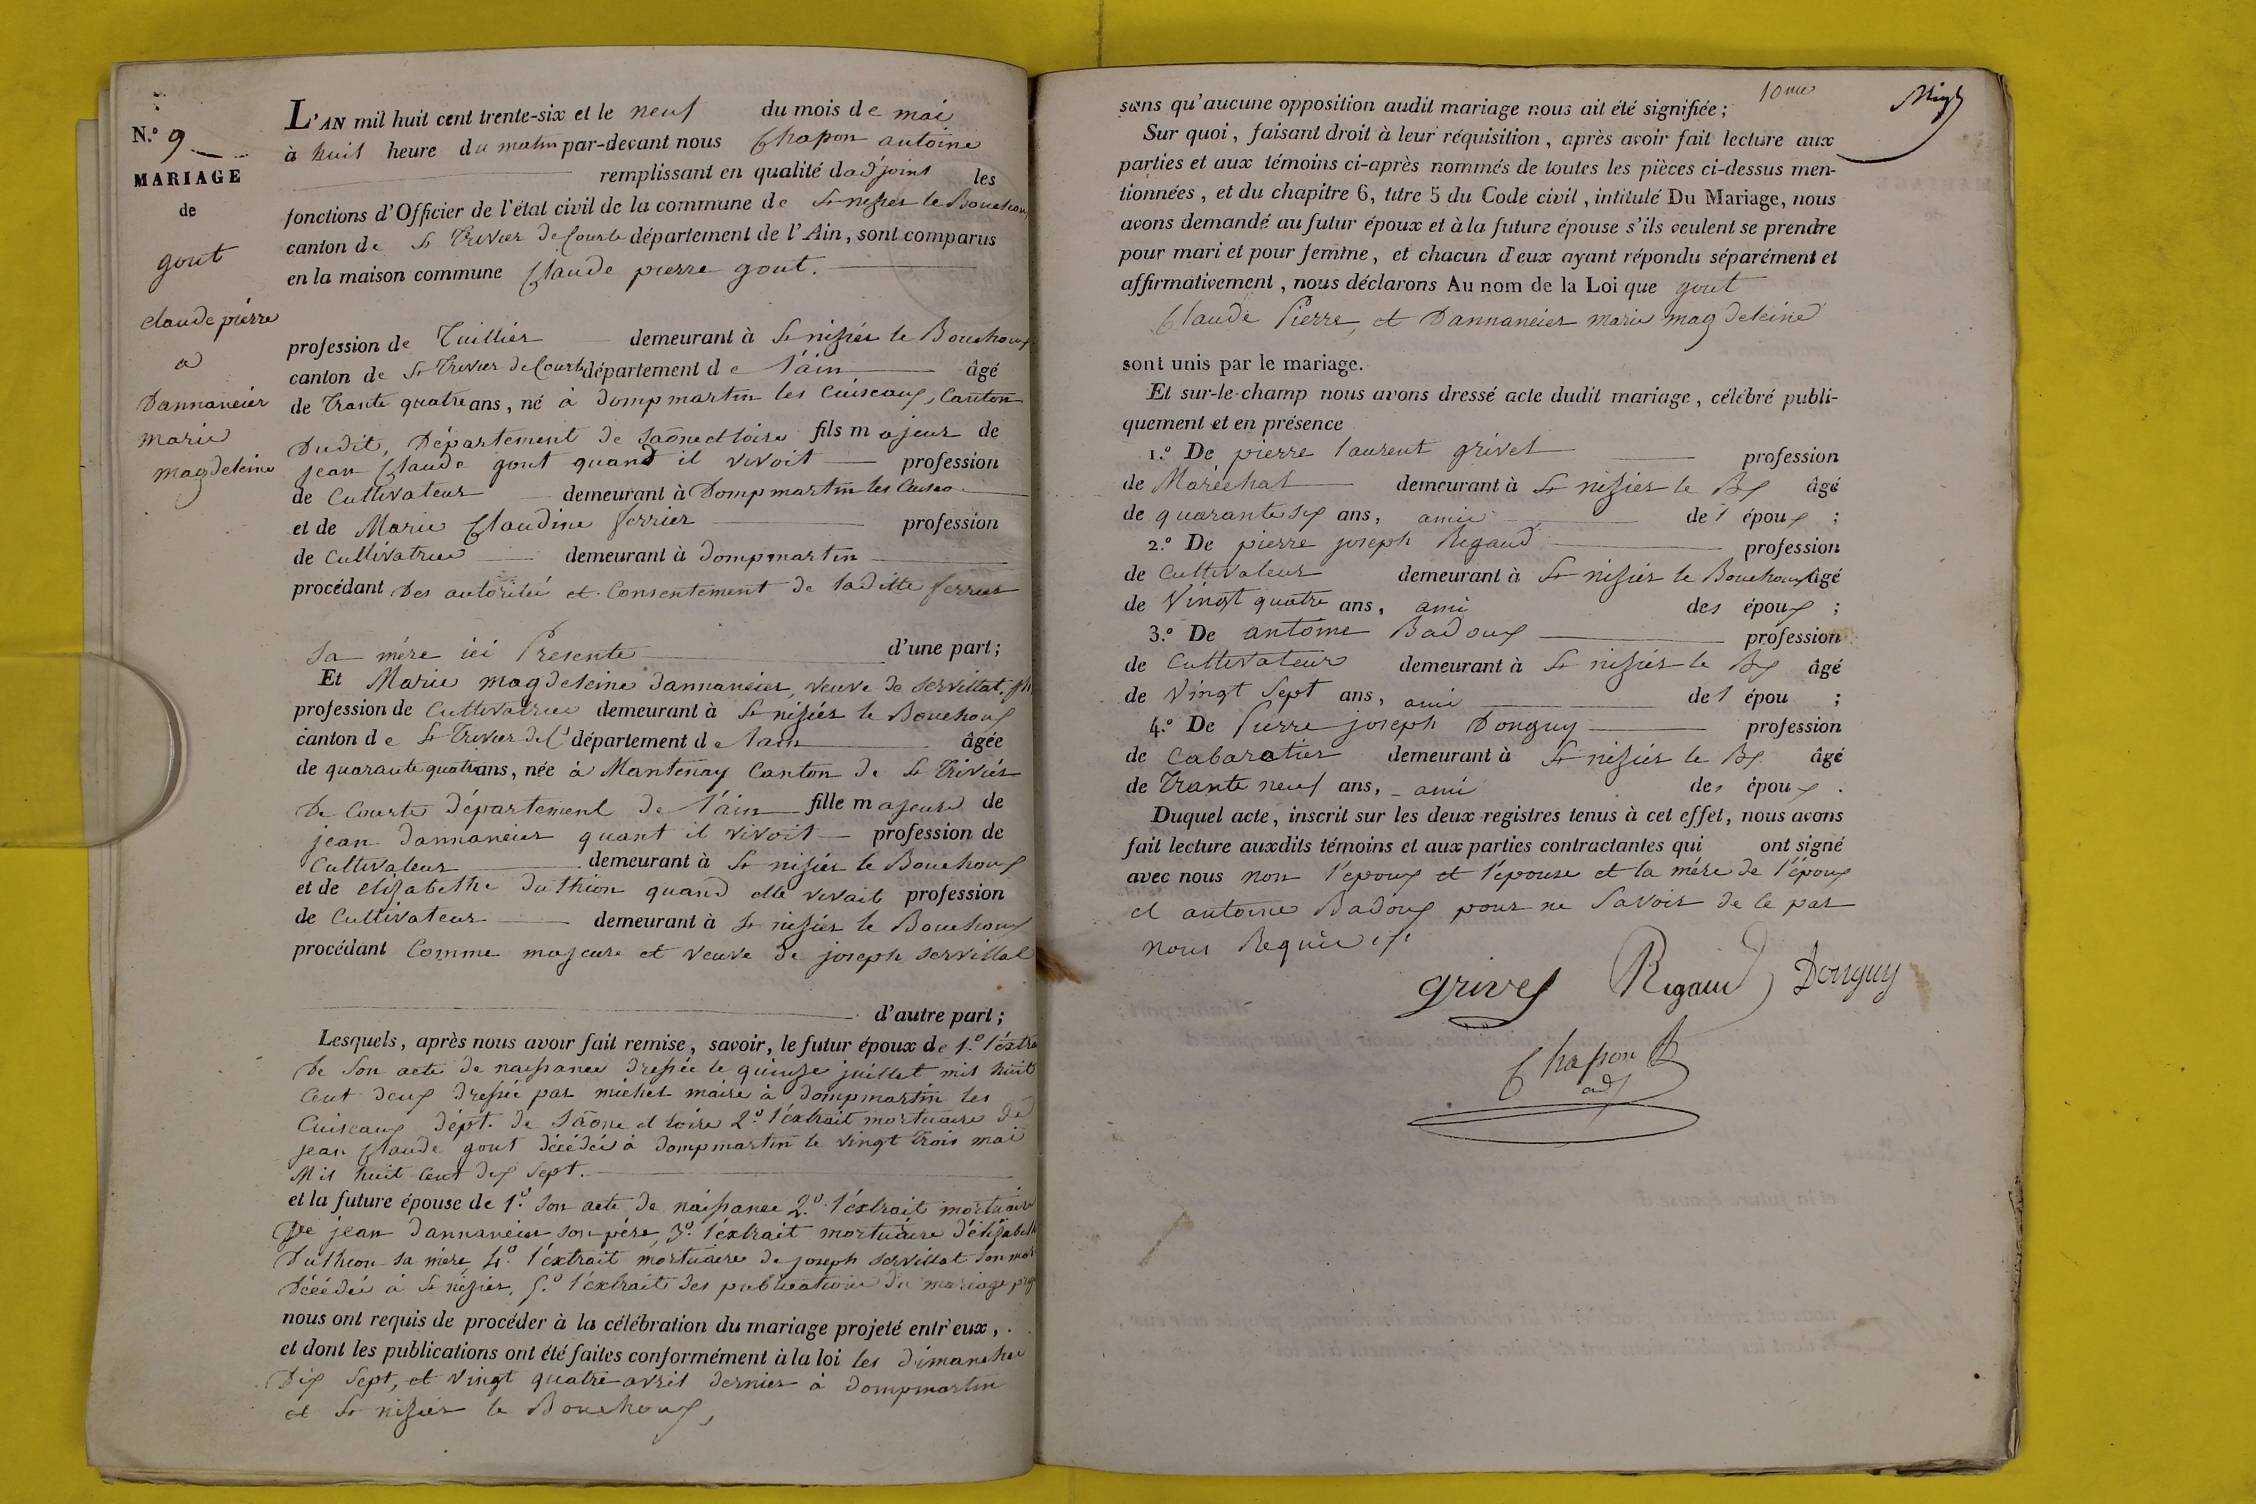 N.º 9
MARIAGE
de
gout
claude pierre
a
Dannancier
marie
magdeleine
L'AN mil huit cent trente-six et le neuf du mois de mai
à huit heure du matin par-devant nous Chapon antoine
remplissant en qualité dadjoint les
fonctions d'Officier de l'état civil de la commune de St nizier le Bouchoux
canton de St Trivier de Courte département de l'Ain, sont comparus
en la maison commune Claude pierre gout.
profession de Tuillier demeurant à St nizier le Bouchoux
canton de St Trivier de Courte département de l'ain âgé
de Trante quatre ans, né à dompmartin les Cuiseaux, Canton
Dudit, Département de Saône et loire fils majeur de
jean Claude gout quand il vivoit profession
de Cultivateur demeurant à Dompmartin les Cuiseo
et de Marie Claudine ferrier profession
de Cultivatrice demeurant à dompmartin
procédant Des autorité et Consentement de laditte ferrier
Sa mére ici Presente d'une part;
Et Marie magdeleine dannancier, veuve de servillat
profession de Cultivatrice demeurant à St nizier le Bouchoux
canton de St Trivier de C. département de lain âgée
de quarante quatre ans, née à Mantenay Canton de St Trivier
De Courte département de l'ain fille majeure de
jean dannancier quant il vivoit profession de
Cultivateur demeurant à St nizier le Bouchoux
et de elizabethe duthion quand elle vivait profession
de Cultivateur demeurant à St nizier le Bouchoux
procédant Comme majeure et veuve de joseph servillat
d'autre part;
Lesquels, après nous avoir fait remise, savoir, le futur époux de 1.º l'éxtra
De Son acte de naissance dressée le quinze juillet mil huit
Cent deux dressée par michel maire à dompmartin les
Cuiseaux dépt. de Sâone et loire 2.º l'éxtrait mortuaire de
jean Claude gout décédé à dompmartin le vingt trois mai
Mil huit Cent dix Sept.
et la future épouse de 1.º Son acte de naissance 2.º l'éxtrait mortuaire
De jean dannancier son pére, 3.º l'éxtrait mortuaire d'élizabeth
Duthion sa mére, 4.º l'éxtrait mortuaire de joseph servillat Son mari
Décédé à St nizier, 5.º l'éxtrait des publications du mariage
nous ont requis de procéder à la célébration du mariage projeté entr'eux,
et dont les publications ont été faites conformément à la loi les dimanche
Dix Sept, et vingt quatre avril dernier à dompmartin
et St nizier le Bouchoux,
10me
sans qu'aucune opposition audit mariage nous ait été signifiée;
Sur quoi, faisant droit à leur réquisition, après avoir fait lecture aux
parties et aux témoins ci-après nommés de toutes les pièces ci-dessus men-
tionnées, et du chapitre 6, titre 5 du Code civil, intitulé Du Mariage, nous
avons demandé au futur époux et à la future épouse s'ils veulent se prendre
pour mari et pour femme, et chacun d'eux ayant répondu séparément et
affirmativement, nous déclarons Au nom de la Loi que gout
Claude Pierre, et Dannancier marie magdeleine
sont unis par le mariage.
Et sur-le-champ nous avons dressé acte dudit mariage, célébré publi-
quement et en présence
1.º De pierre laurent grivet profession
de Maréchal demeurant à St nizier le Bx âgé
de quarante six ans, amie de l époux;
2.º De pierre joseph Rigaud profession
de Cultivateur demeurant à St nizier le Bouchoux âgé
de Vingt quatre ans, ami des époux;
3.º De antoine Badoux profession
de Cultivateur demeurant à St nizier le Bx âgé
de Vingt Sept ans, ami de l épou;
4.º De Pierre joseph Donguy profession
de Cabaratier demeurant à St nizier le Bx âgé
de Trante neuf ans, ami des époux.
Duquel acte, inscrit sur les deux registres tenus à cet effet, nous avons
fait lecture auxdits témoins et aux parties contractantes qui ont signé
avec nous non l'époux et l'épouse et la mére de l'époux
et antoine Badoux pour ne Savoir de ce par
nous Requie
grivet Rigaud Donguy
Chapon
adj